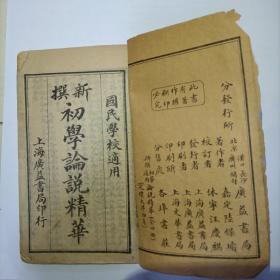 此書
有著
作權
翻印
必究
分發行所
廣益書局
著作者 嘉定陸保璿
校訂者 休寧江
發行者 上海廣益書局
印刷者 上海
分售處 各埠書莊
國民學校適用
新撰
初學論說精華
上海廣益書局印行